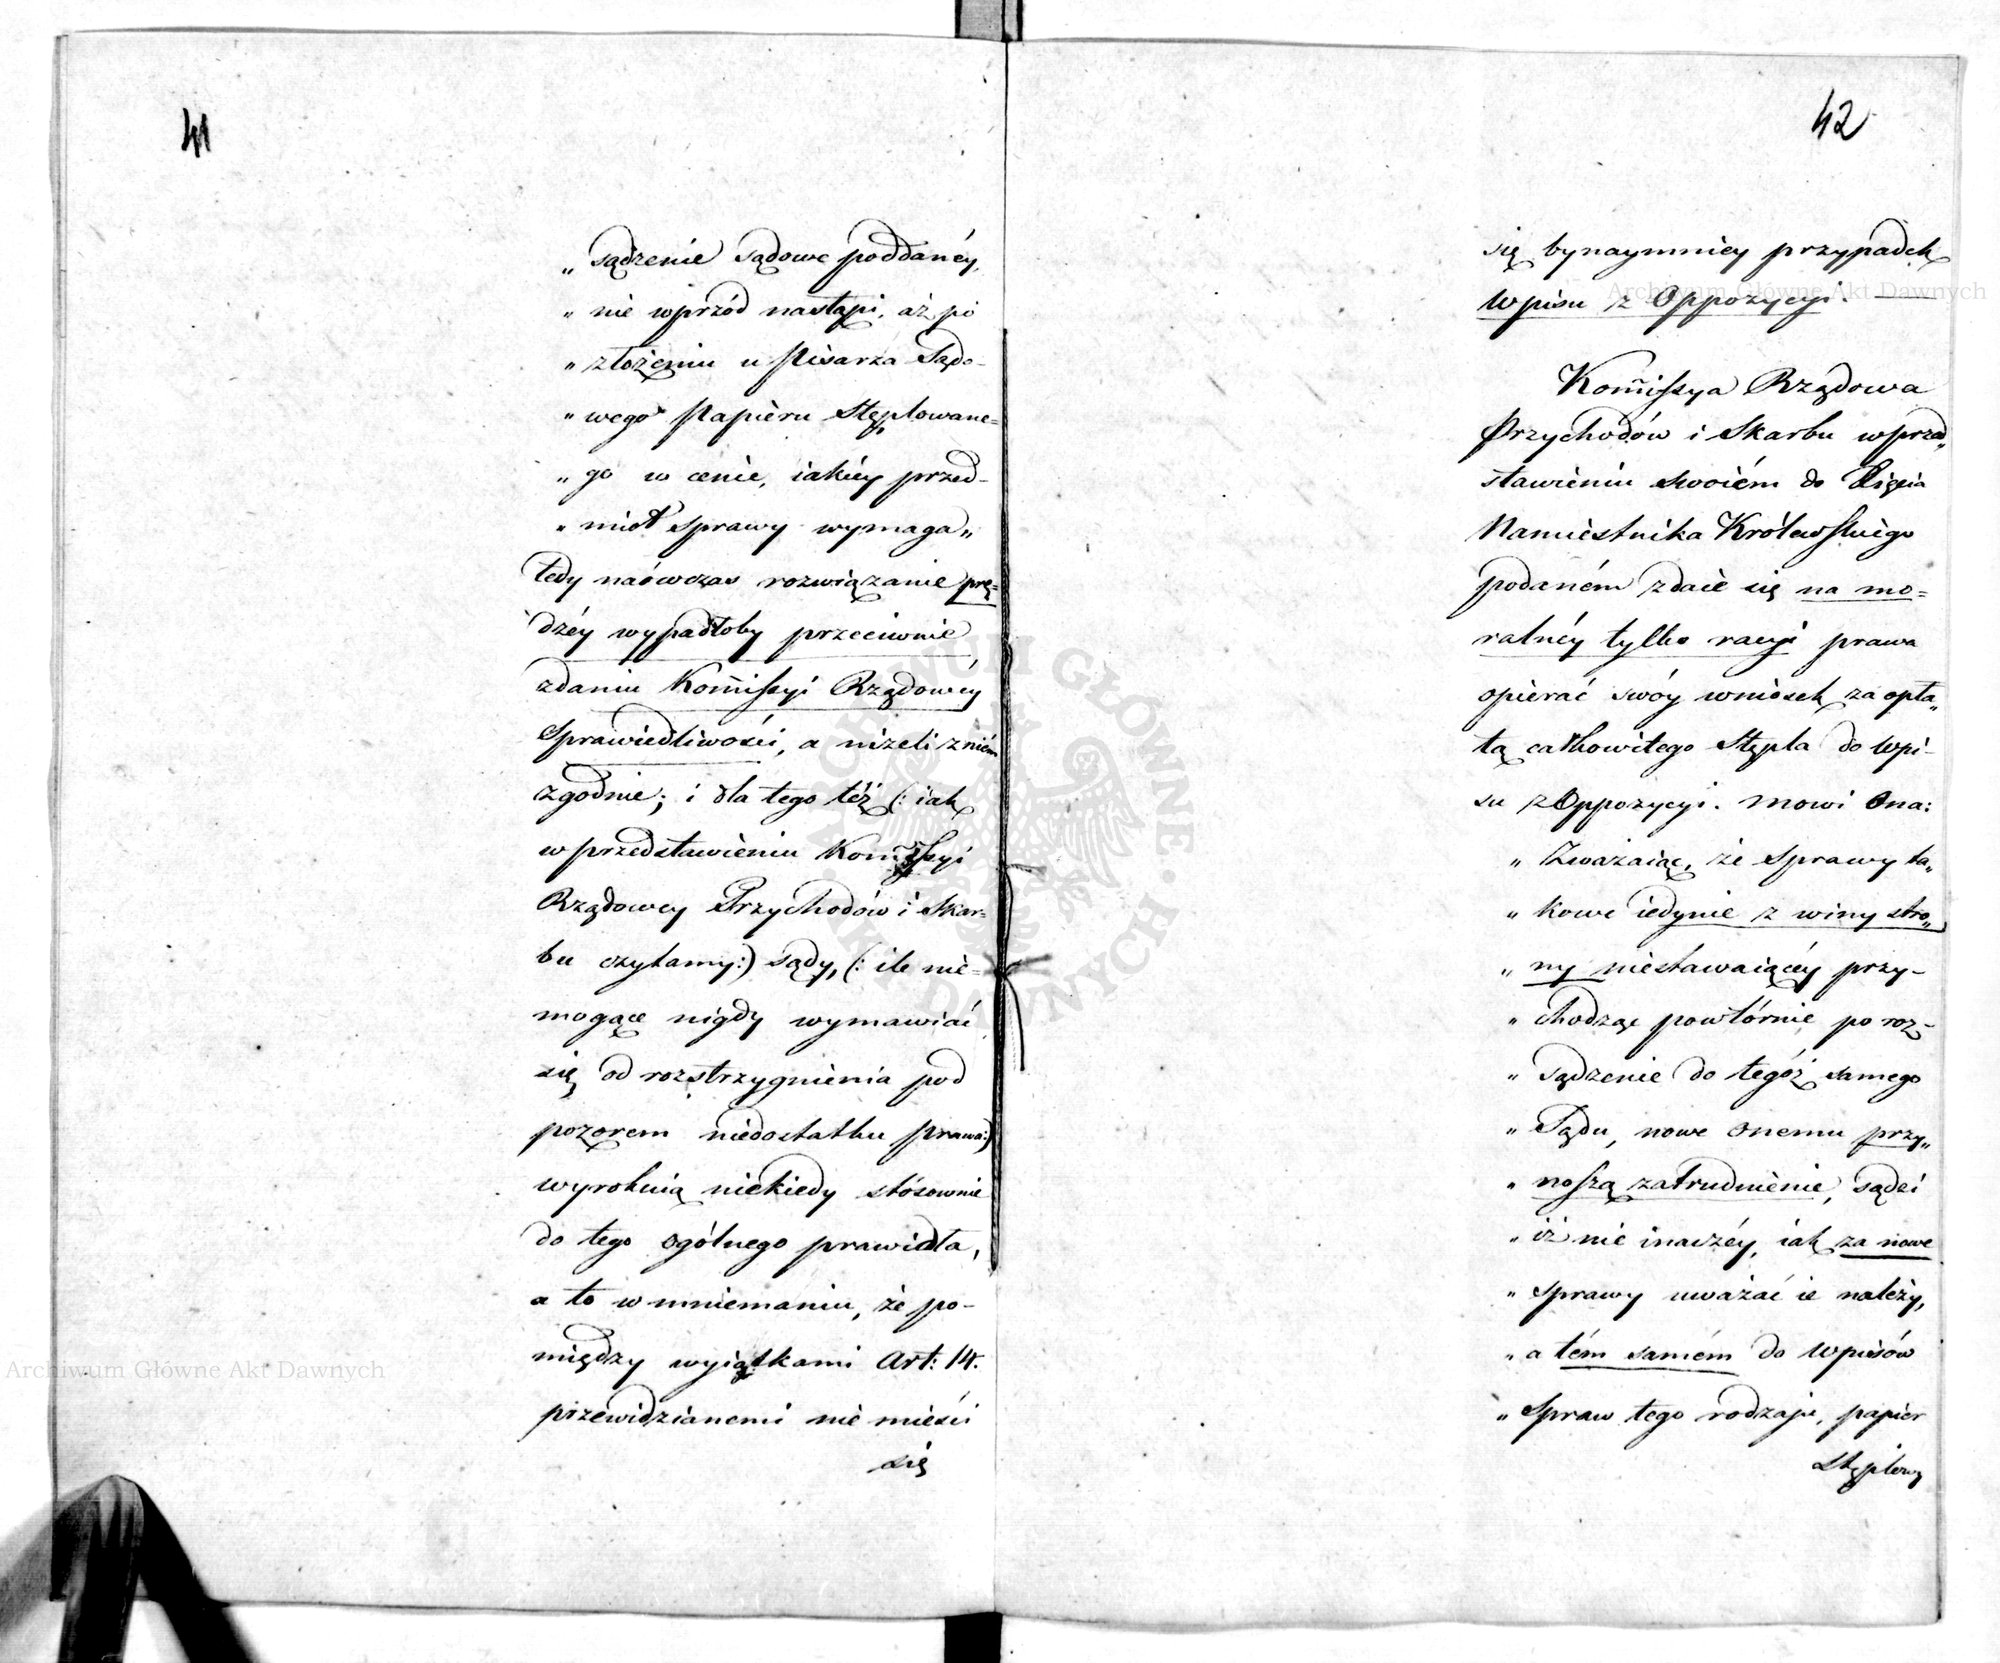 41
„ sądzenie sądowe poddanéy,
„ nie wprzód nastąpi, aż po
„ złożeniu u Pisarza Sądo-
„ wego Papieru Stęplowane=
„ go w cenie, iakiéy przed-
„ miot sprawy wymaga„
tedy naówczas rozwiązanie prę=
dzéy wypadłoby przeciwnie
zdaniu Kom̃issyi Rządowéy
Sprawiedliwości, a niżeli z niém
zgodnie; i dla tego też (: iak
w przedstawieniu Kom̃issyi
Rządowey Przychodów i Skar=
bu czytamy:) sądy, (: ile nie=
mogące nigdy wymawiać
się od rozstrzygnienia pod
pozorem niedostatku prawa:)
wyrokuią niekiedy stósownie
do tego ogólnego prawidła,
a to w mniemaniu, że po-
między wyiątkami Art: 14.
przewidzianemi nie mieści
się
42
się bynaymniey przypadek
Wpisu z Oppozycyi. —
Kom̃issya Rządowa
Przychodów i Skarbu w przed„
stawieniu swoiém do Xięcia
Namiestnika Królewskiego
podaném zdaie się na mo=
ralnéy tylko racyi prawa
opierać swóy wniosek za opła„
tą całkowitego Stępla do Wpi-
su z Oppozycyi. Mowi Ona:
„ Zważaiąc, że sprawy ta„
„ kowe iedynie z winy stro„
„ ny niestawaiącéy przy-
„ chodząc powtórnie po roz-
„ sądzenie do tegóż samego
„ Sądu, nowe onemu przy„
„ noszą zatrudnienie, sądzi
„ iż nie inaczéy, iak za nowe
„ sprawy uważać ie należy,
„ a tém samém do Wpisów
„ Spraw tego rodzaju, papier
Stęplowy
Archiwum Główne Akt Dawnych
Archiwum Główne Akt Dawnych
ARCHIWUM GŁÓWNE AKT DAWNYCH